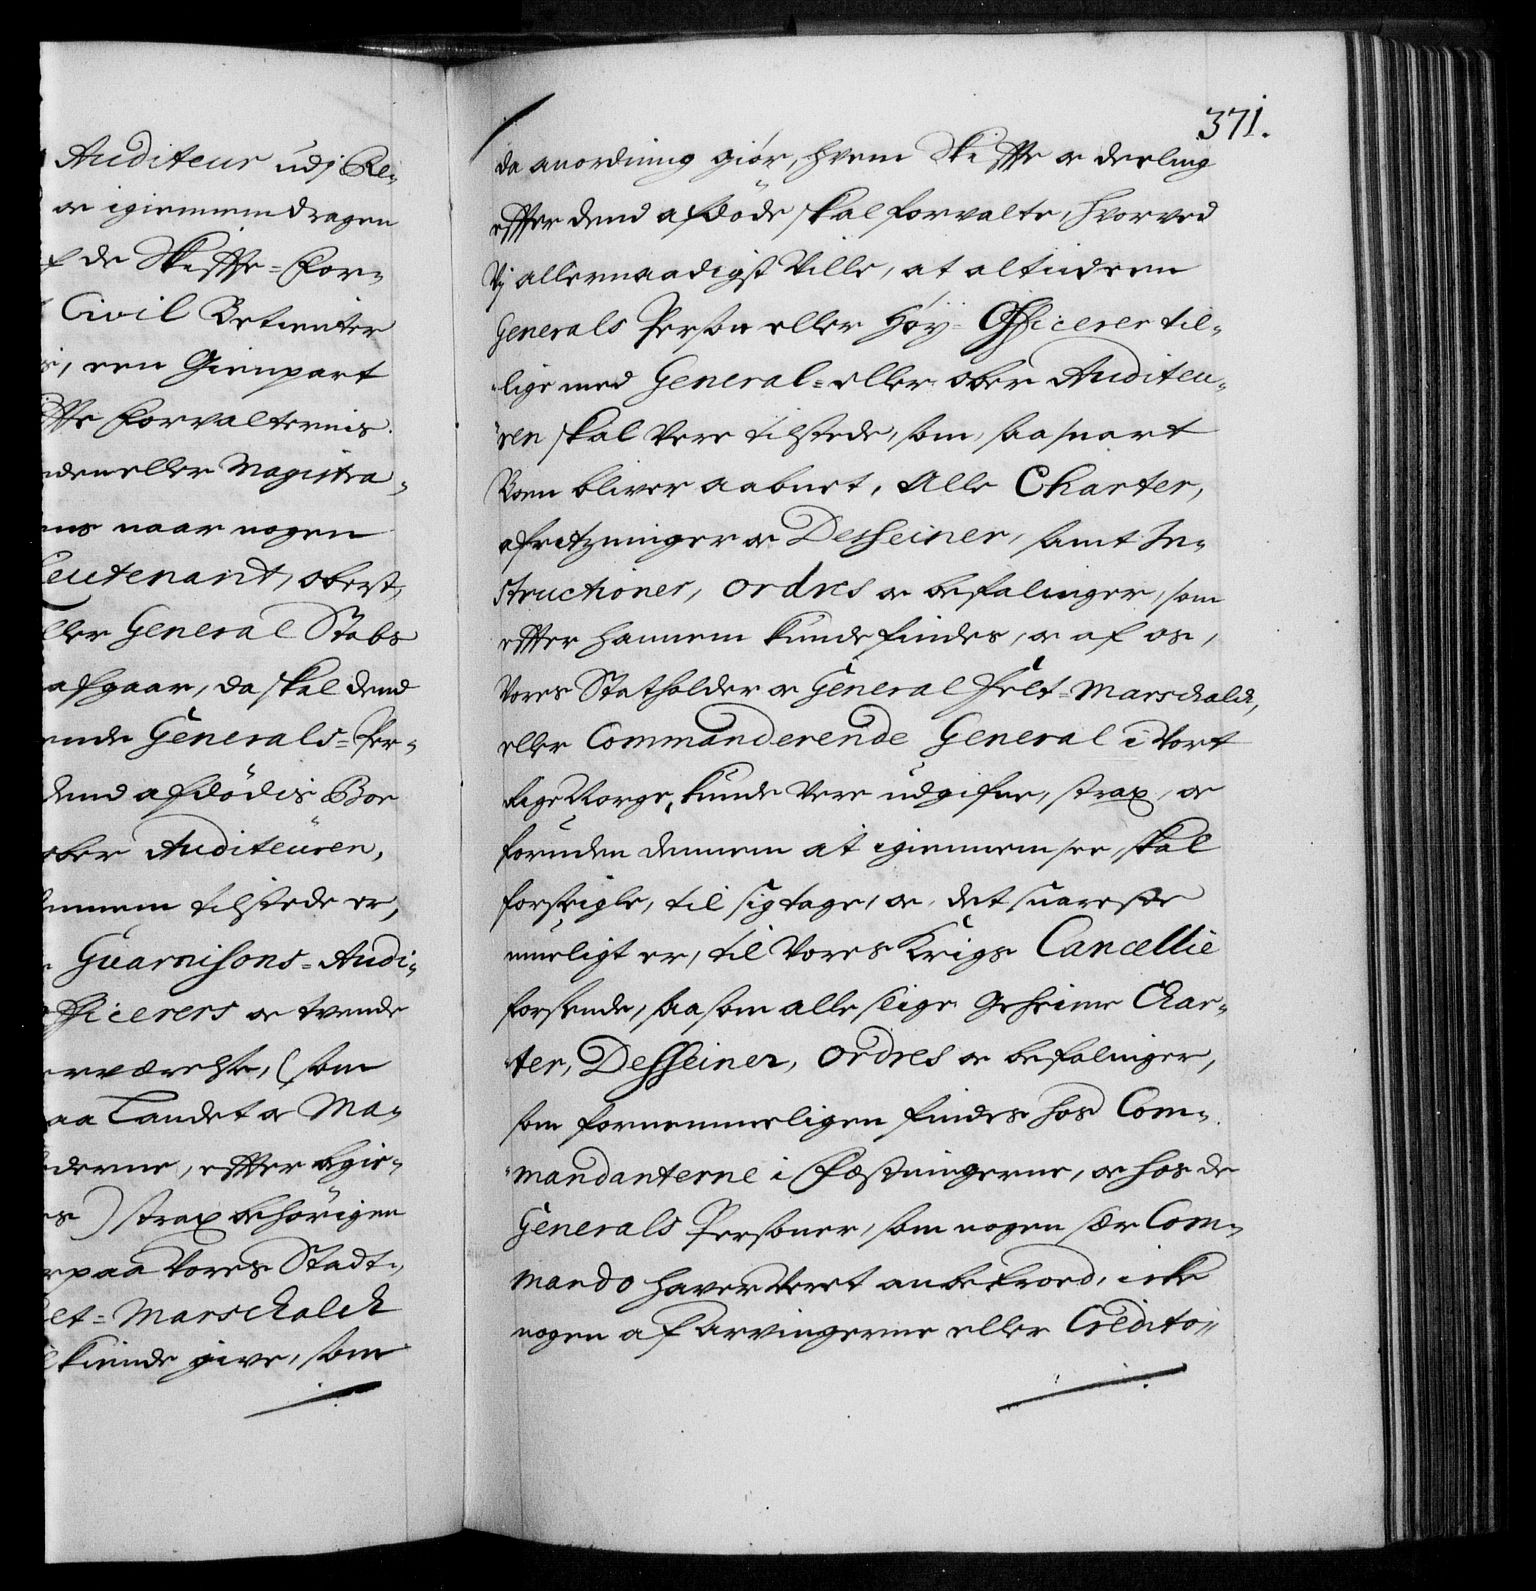 Auditeur udj Re-
or igiennemdragen
f de Skiffte-For-
Civil Betienter
en Gienpart
ffte Forvalternis.
nden eller Magistra-
naar nogen
Leutenant, oberst,
ller General Stabs
afgaar, da skal dend
ende Generals-Per-
dend afdødis Boe
ober Auditeuren,
tilstede er,
Guarnisons-Audi-
fficerers oc tvende
erværelse, (som
aa Landet oc Ma-
derne, effter begie-
es) strax behörigen
paa Vores Stadt-
elt-Marschalck
kunde give, som
371.
da anordning giör, hvem Skiffte oc deeling
effter dend afdöde skal forvalte, hvorved
Vj allernaadigst Ville, at altiid een
Generals Person eller Höy-Officerer til-
lige med General- eller ober Auditeu-
ren skal Vere tilstede, som, saa snart
Boen bliver aabnet, Alle Charter,
afritzninger oc Desseiner, samt In-
structioner, ordres oc befalinger, som
effter hannem kunde findes, oc af os,
Vores Statholder oc General Felt-Marschalck,
eller Commanderende General i Vort
Rige Norge, kunde Vere udgifne, strax, oc
foruden dennem at igiennem see, skal
forseigle, til sig tage, oc det snareste
mueligt er, til Vores Krigs Cancellie
forsende, saasom alle slige geheime Char-
ter, Desseiner, ordres oc befalinger,
som fornemmeligen findes hos Com-
mandanterne i Fæstningerne, oc hos de
Generals Personer, som nogen sær Com-
mando haver Veret anbetroed, icke
nogen af Arvingerne eller Credito-